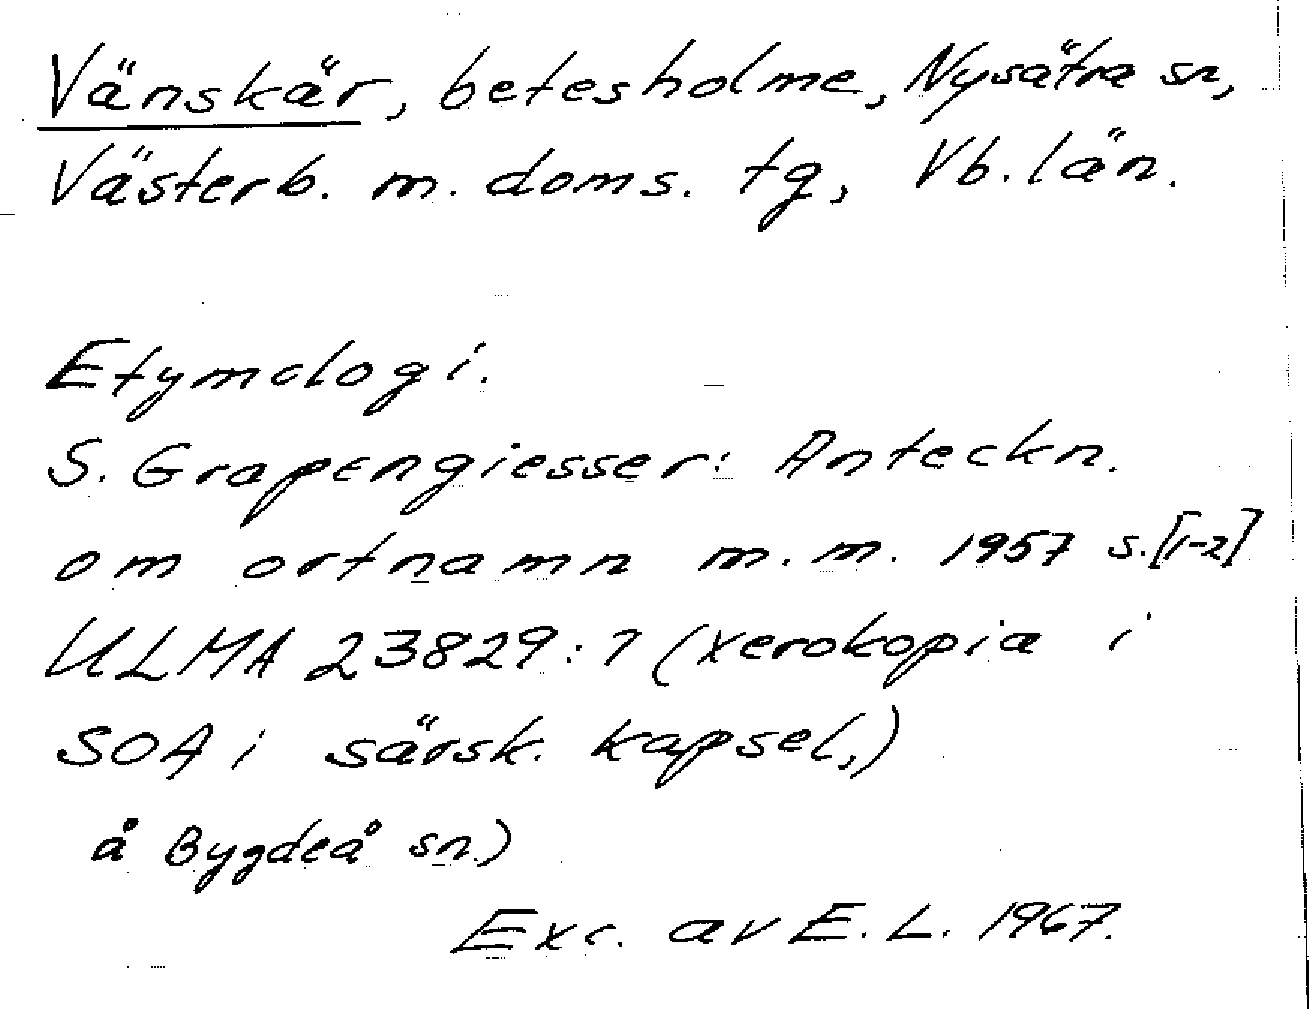 Vänskär, betesholme, Nysätra sn,
Västerb. m. doms. tg, Vb. län.
Etymologi.
S. Grapengiesser: Anteckn.
om ortnamn m.m. 1957 s.[1-2]
ULMA 23829:7 (xerokopia i
SOA i särsk. kapsel,)
å Bygdeå sn.)
Exc. av E. L. 1967.